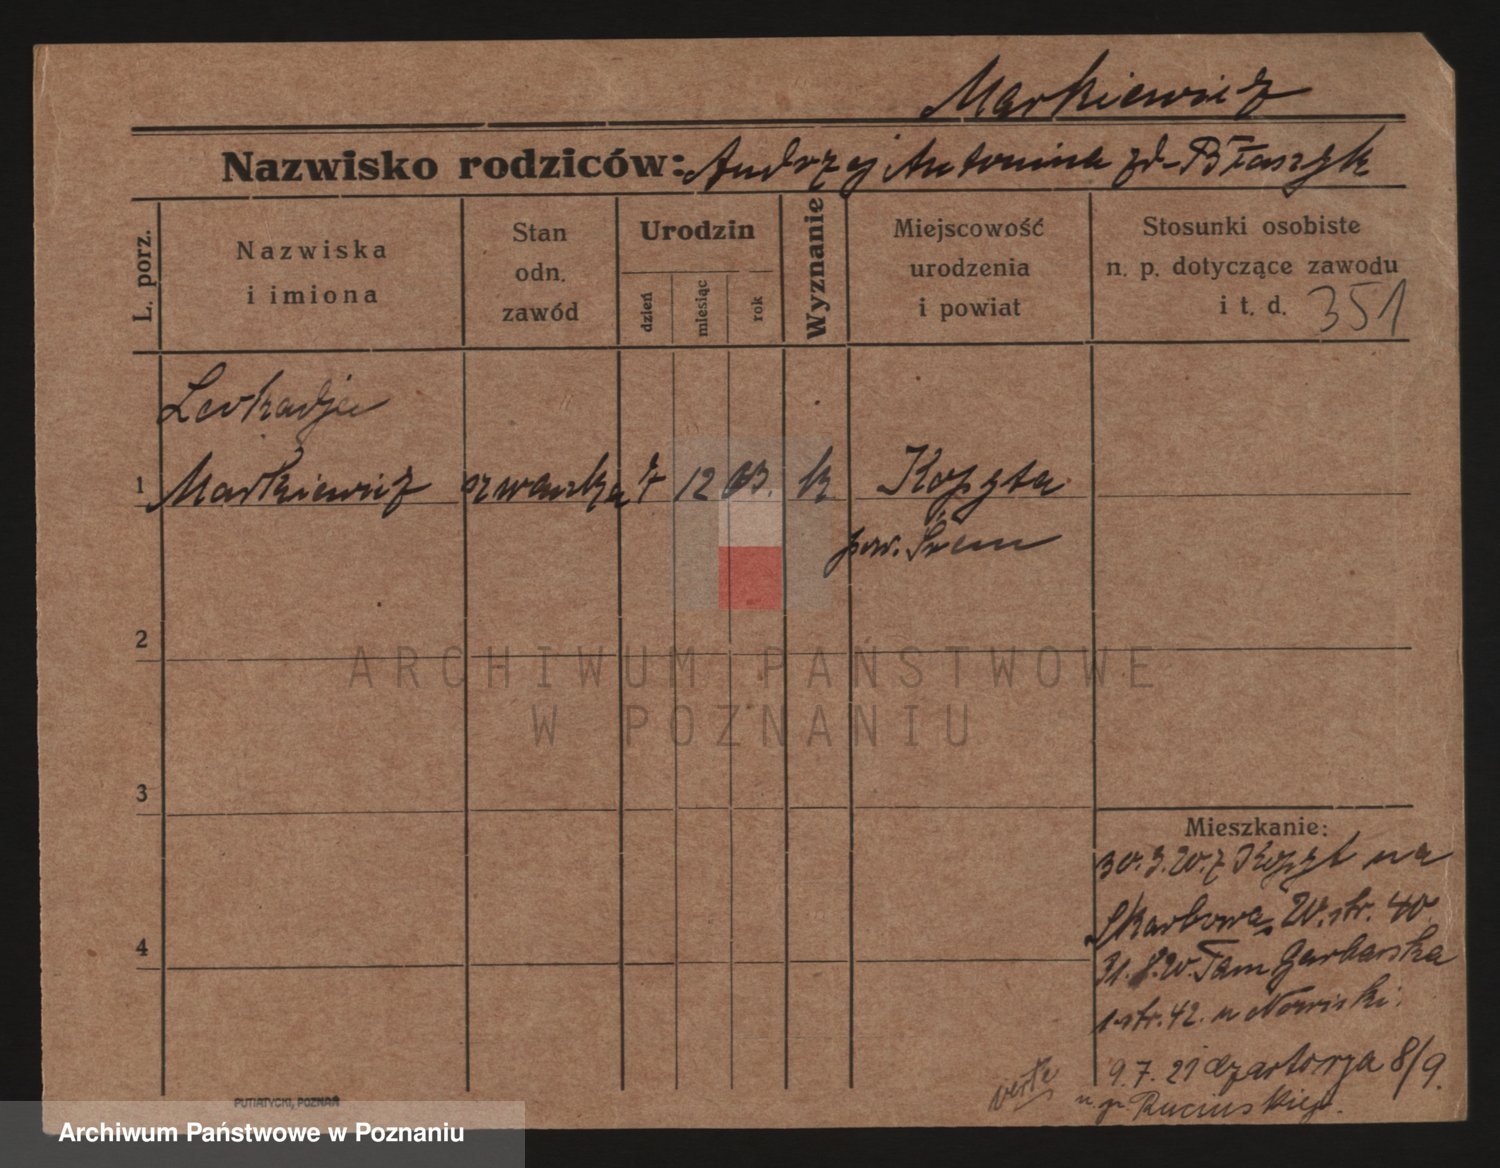 Markiewicz
Nazwisko rodziców: Andrzej Antonina zd- Błaszyk
L. porz.
Nazwiska i imiona
Stan odn. zawód
Urodzin
dzień
miesiąc
rok
Wyznanie
Miejscowość urodzenia i powiat
Stosunki osobiste n. p. dotyczące zawodu i t. d. 351
Leokadja
1 Markiewicz szwaczka 7 12 03. k Kopyta
pow. Śrem
2
3
4
Mieszkanie:
30.3.20. z Kopyt na
Skarbowa 20. str. 40.
31.8.20. Tam Garbarska
1 str. 42. u Nowiski.
9.7.21 Czartorja 8/9.
u p. Ruciuskiej.
verte
PUTIATYCKI, POZNAŃ
ARCHIWUM PAŃSTWOWE
W POZNANIU
Archiwum Państwowe w Poznaniu